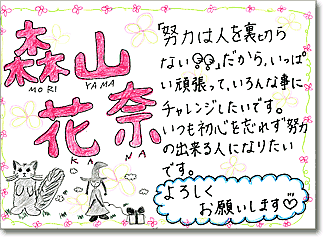 森山
MORI YAMA
花奈
KA NA
「努力は人を裏切ら
ない」だから、いっぱ
い頑張って、いろんな事に
チャレンジしたいです。
いつも初心を忘れず努力
の出来る人になりたい
です。
よろしく
お願いします♡